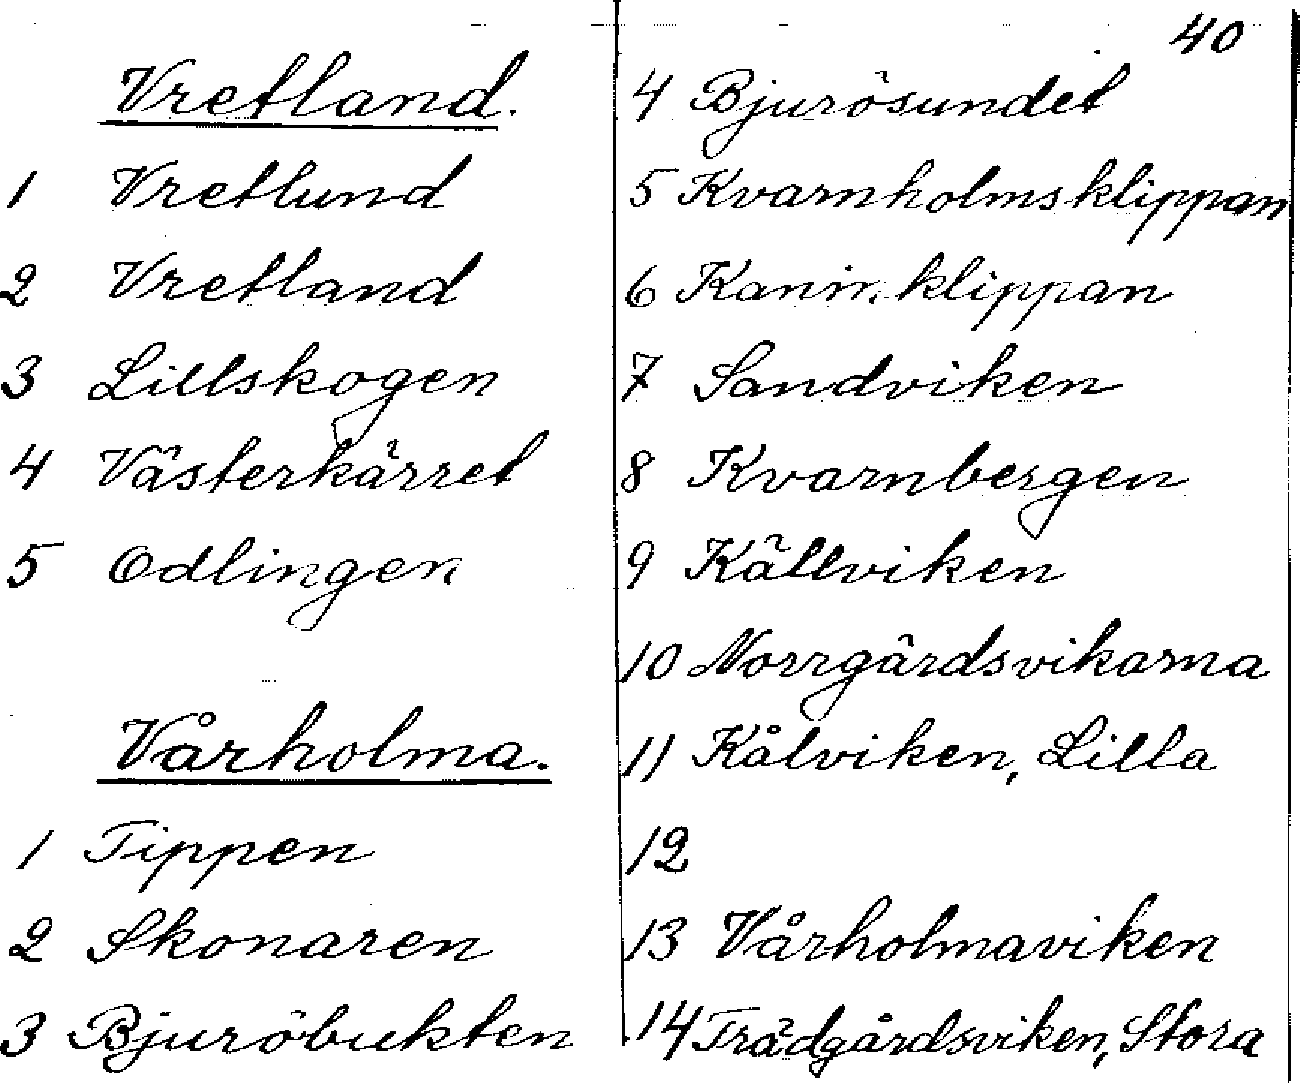 40
Vretland.
1 Vretlund
2 Vretland
3 Lillskogen
4 Västerkärret
5 Odlingen
Vårholma.
1 Tippen
2 Skonaren
3 Bjuröbukten
4 Bjurösundet
5 Kvarnholmsklippan
6 Kaninklippan
7 Sandviken
8 Kvarnbergen
9 Källviken
10 Norrgårdsvikarna
11 Kålviken, Lilla
12
13 Vårholmaviken
14 Trädgårdsviken, Stora